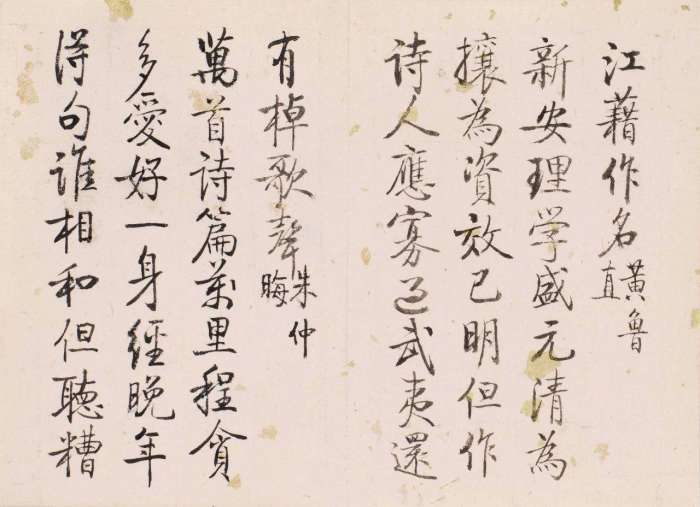 江藉作名黃魯直
新安理学盛元清為
攘為資效已明但作
詩人應寡過武夷還
有棹歌聲朱仲晦
萬首詩篇萬里程貪
多愛好一身經晚年
得句誰相和但聽糟